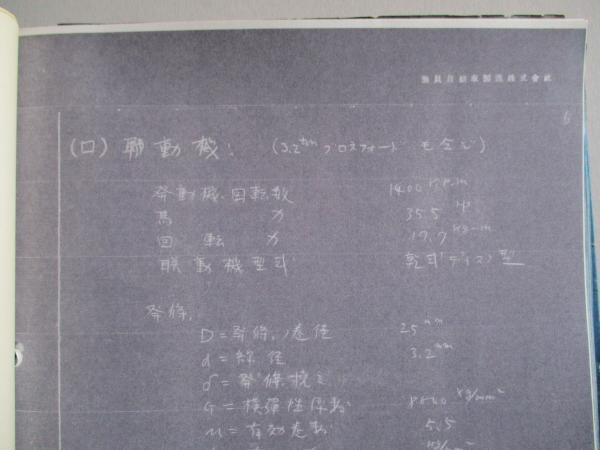 自動車製造株式會社
6
(ロ) 聯動機: (3.2mm ブロスフォード も含む)
発動機、回転数 1400 r.p.m
馬 力 35.5 HP
回 転 力 17.7 kg-m
聯動機型式 乾式ディスク型
発條、
D = 発條ノ巻径 25 mm
d = 線径 3.2 mm
δ = 発條撓ミ
G = 横弾性係数 kg/mm²
n = 有効巻数 5.5
kg/mm²